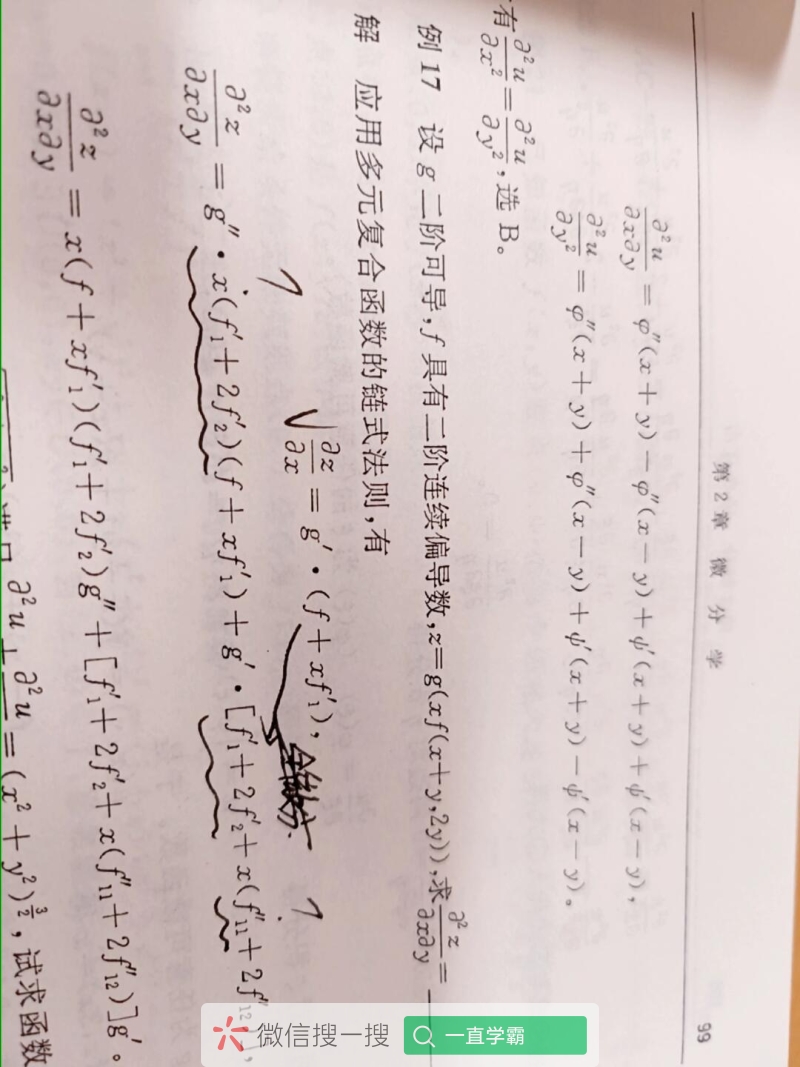 第2章 微分学 99
∂²u/∂x∂y = φ″(x+y)−φ″(x−y)+ψ′(x+y)+ψ′(x−y),
∂²u/∂y² = φ″(x+y)+φ″(x−y)+ψ′(x+y)−ψ′(x−y)。
有 ∂²u/∂x² = ∂²u/∂y²,选 B。
例 17 设 g 二阶可导,f 具有二阶连续偏导数,z=g(xf(x+y,2y)),求 ∂²z/∂x∂y =
解 应用多元复合函数的链式法则,有
√ ∂z/∂x = g′·(f+xf′₁),
∂²z/∂x∂y = g″·x(f′₁+2f′₂)(f+xf′₁)+g′·[f′₁+2f′₂+x(f″₁₁+2f″₁₂)],
∂²z/∂x∂y = x(f+xf′₁)(f′₁+2f′₂)g″+[f′₁+2f′₂+x(f″₁₁+2f″₁₂)]g′。
∂²u + ∂²u = (x²+y²)^(3/2),试求函数
微信搜一搜 一直学霸